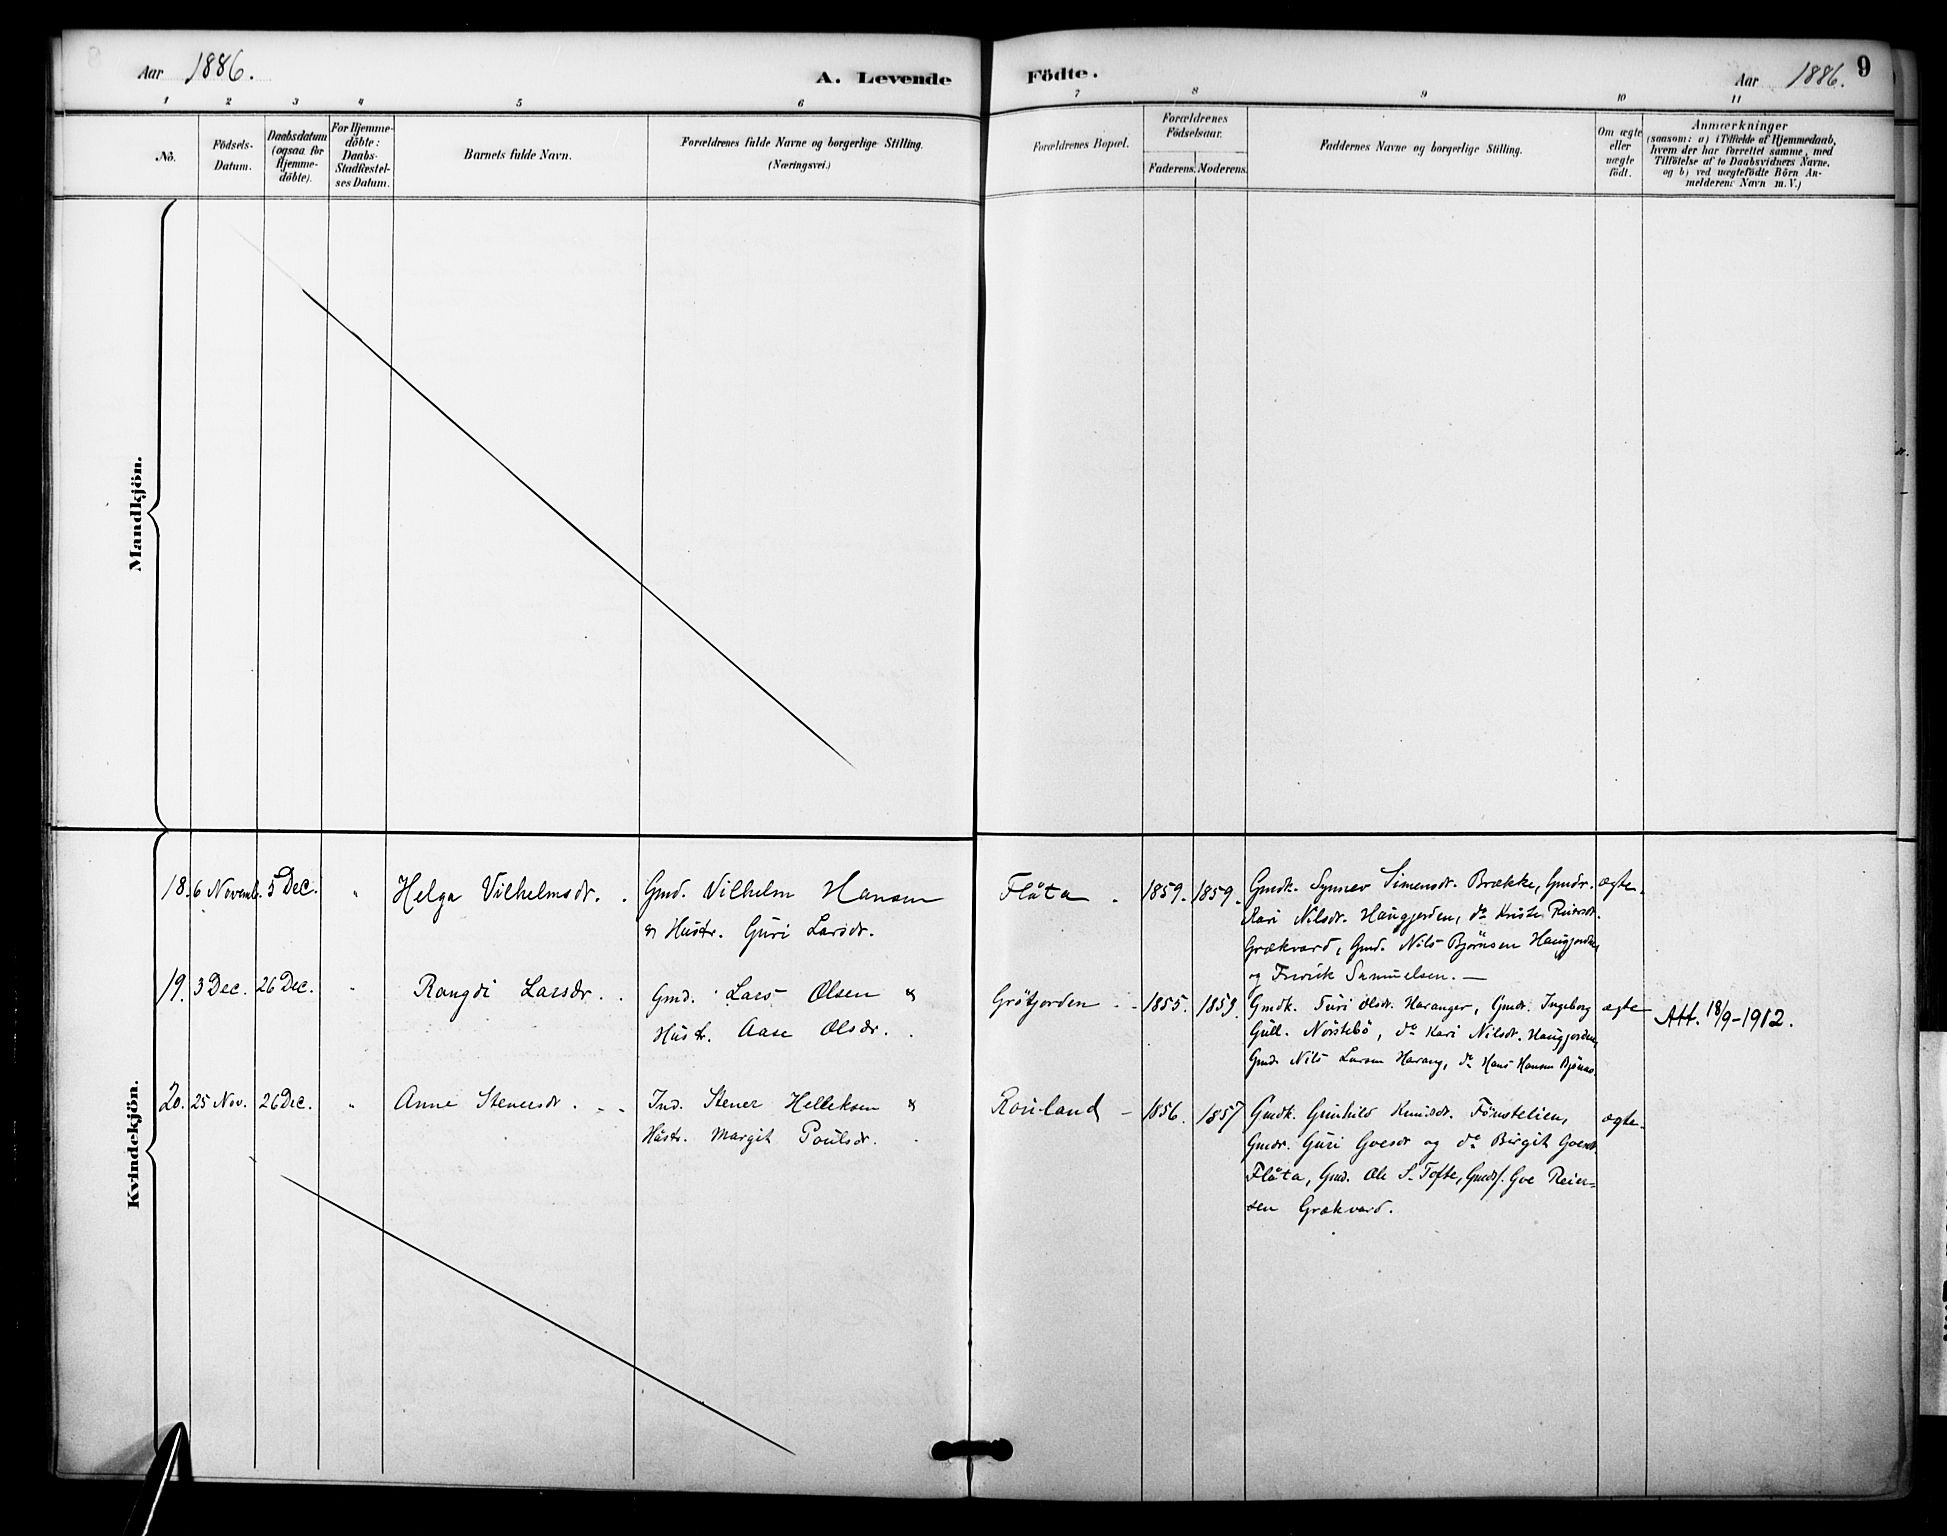 Aar 1886.
A. Levende Födte.
Aar 1886.
9
1 2 3 4 5 6 7 8 9 10 11
No.
Födsels-
Datum.
Daabsdatum
(ogsaa for
Hjemme-
döbte).
For Hjemme-
döbte:
Daabs-
Stadfæstel-
ses Datum.
Barnets fulde Navn.
Forældrenes fulde Navne og borgerlige Stilling.
(Næringsvei.)
Forældrenes Bopæl.
Forældrenes
Födselsaar.
Faderens. Moderens.
Faddernes Navne og borgerlige Stilling.
Om ægte
eller
uægte
födt.
Anmærkninger
(saasom: a) i Tilfælde af Hjemmedaab,
hvem der har forrettet samme, med
Tilföielse af to Daabsvidners Navne,
og b) ved uægtefödte Börn An-
melderens Navn m.V.)
Mandkjön.
Kvindekjön.
18. 6 Novemb. 5 Dec. " Helga Vilhelmsdr.
Gmd. Vilhelm Hansen
& Hustr. Guri Larsdr.
Flåta
1859. 1859.
Gmdk. Synnev Simensdr. Brække, Gmdr.
Kari Nilsdr. Haugjorden, do
Grækvard, Gmd. Nils Bjørnsen Haugjorden
og Samuelsen. —
ægte.
19. 3 Dec. 26 Dec. " Rangdi Larsdr.
Gmd. Lars Olsen &
Hustr. Aase Olsdr.
Grötjorden
1855. 1859.
Gmdk. Turi Olsdr. Haranger, Gmdr. Ingeborg
Gull. Norstebö, do Kari Nilsdr. Haugjorden,
Gmd. Nils Larsen Harang, do Hans Hansen
ægte
Att. 18/9-1912.
20. 25 Nov. 26 Dec. " Anne Stenersdr.
Ind. Stener Helleksen &
Hustr. Margit Poulsdr.
Rouland
1856. 1857
Gmdk. Gunhild Knudsdr. Fönstelien,
Gmdr. Guri Goesdr og do Birgit Goesdr
Flåta, Gmd. Ole S. Tofte, Gmds. Goe Reier-
sen Grækvard.
ægte.